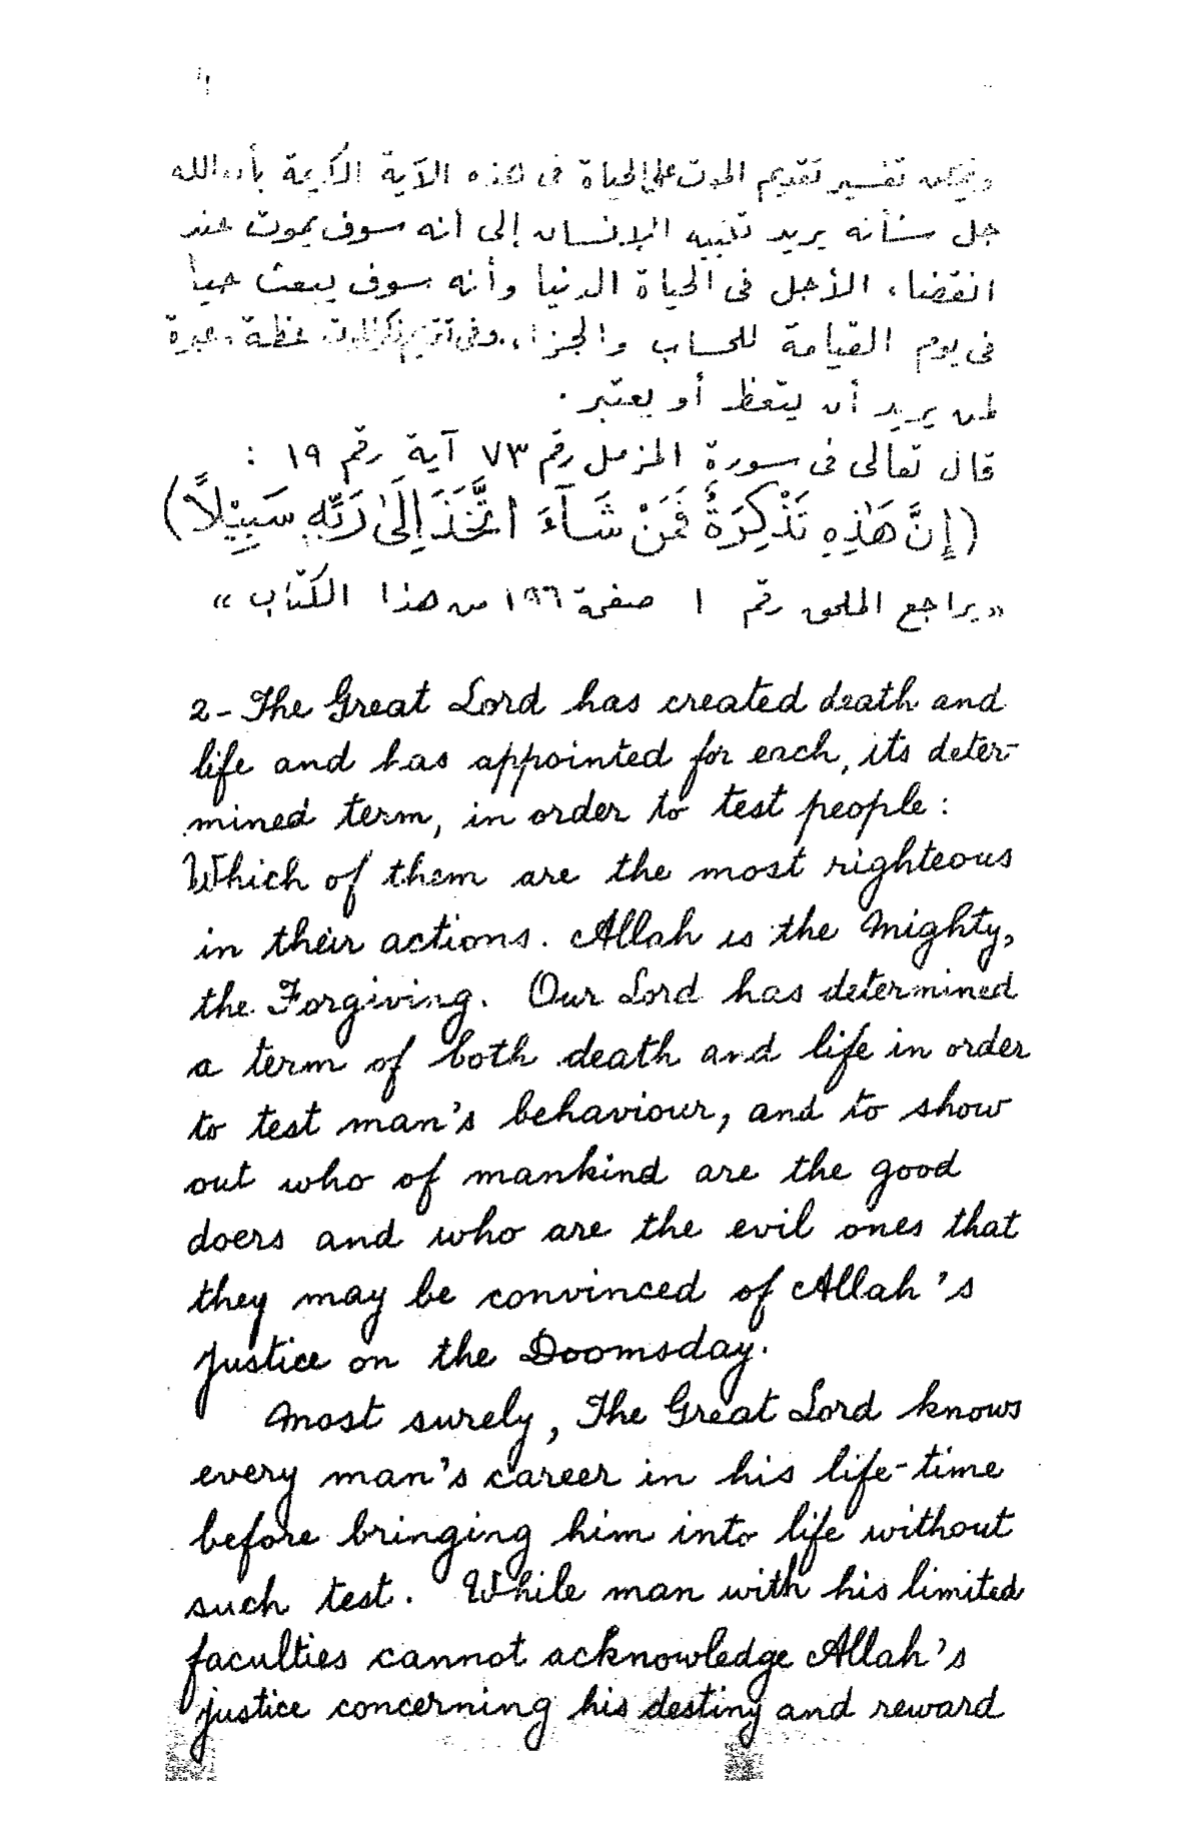 ويمكن تفسير تقديم الموت على الحياة فى هذه الآية الكريمة بأن الله
جل شأنه يريد تنبيه الإنسان إلى أنه سوف يموت عند
انقضاء الأجل فى الحياة الدنيا وأنه سوف يبعث حيا
فى يوم القيامة للحساب والجزاء، وفى تقديم ذكر الموت عظة وعبرة
لمن يريد أن يتعظ أو يعتبر.
قال تعالى فى سورة المزمل رقم ٧٣ آية رقم ١٩ :
(إِنَّ هَٰذِهِ تَذْكِرَةٌ فَمَنْ شَآءَ اتَّخَذَ إِلَىٰ رَبِّهِ سَبِيْلاً)
«يراجع الملحق رقم ١ صفحة ١٩٦ من هذا الكتاب»
2- The Great Lord has created death and
life and has appointed for each, its deter-
mined term, in order to test people:
Which of them are the most righteous
in their actions. Allah is the Mighty,
the Forgiving. Our Lord has determined
a term of both death and life in order
to test man's behaviour, and to show
out who of mankind are the good
doers and who are the evil ones that
they may be convinced of Allah's
justice on the Doomsday.
Most surely, The Great Lord knows
every man's career in his life-time
before bringing him into life without
such test. While man with his limited
faculties cannot acknowledge Allah's
justice concerning his destiny and reward